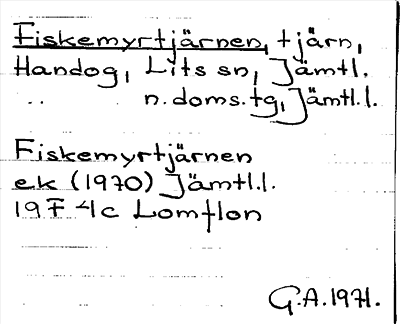 Fiskemyrtjärnen, tjärn,
Handog, Lits sn, Jämtl.
.. n. doms. tg, Jämtl. l.
Fiskemyrtjärnen
ek (1970) Jämtl. l.
19F 4c Lomflon
G.A. 1971.